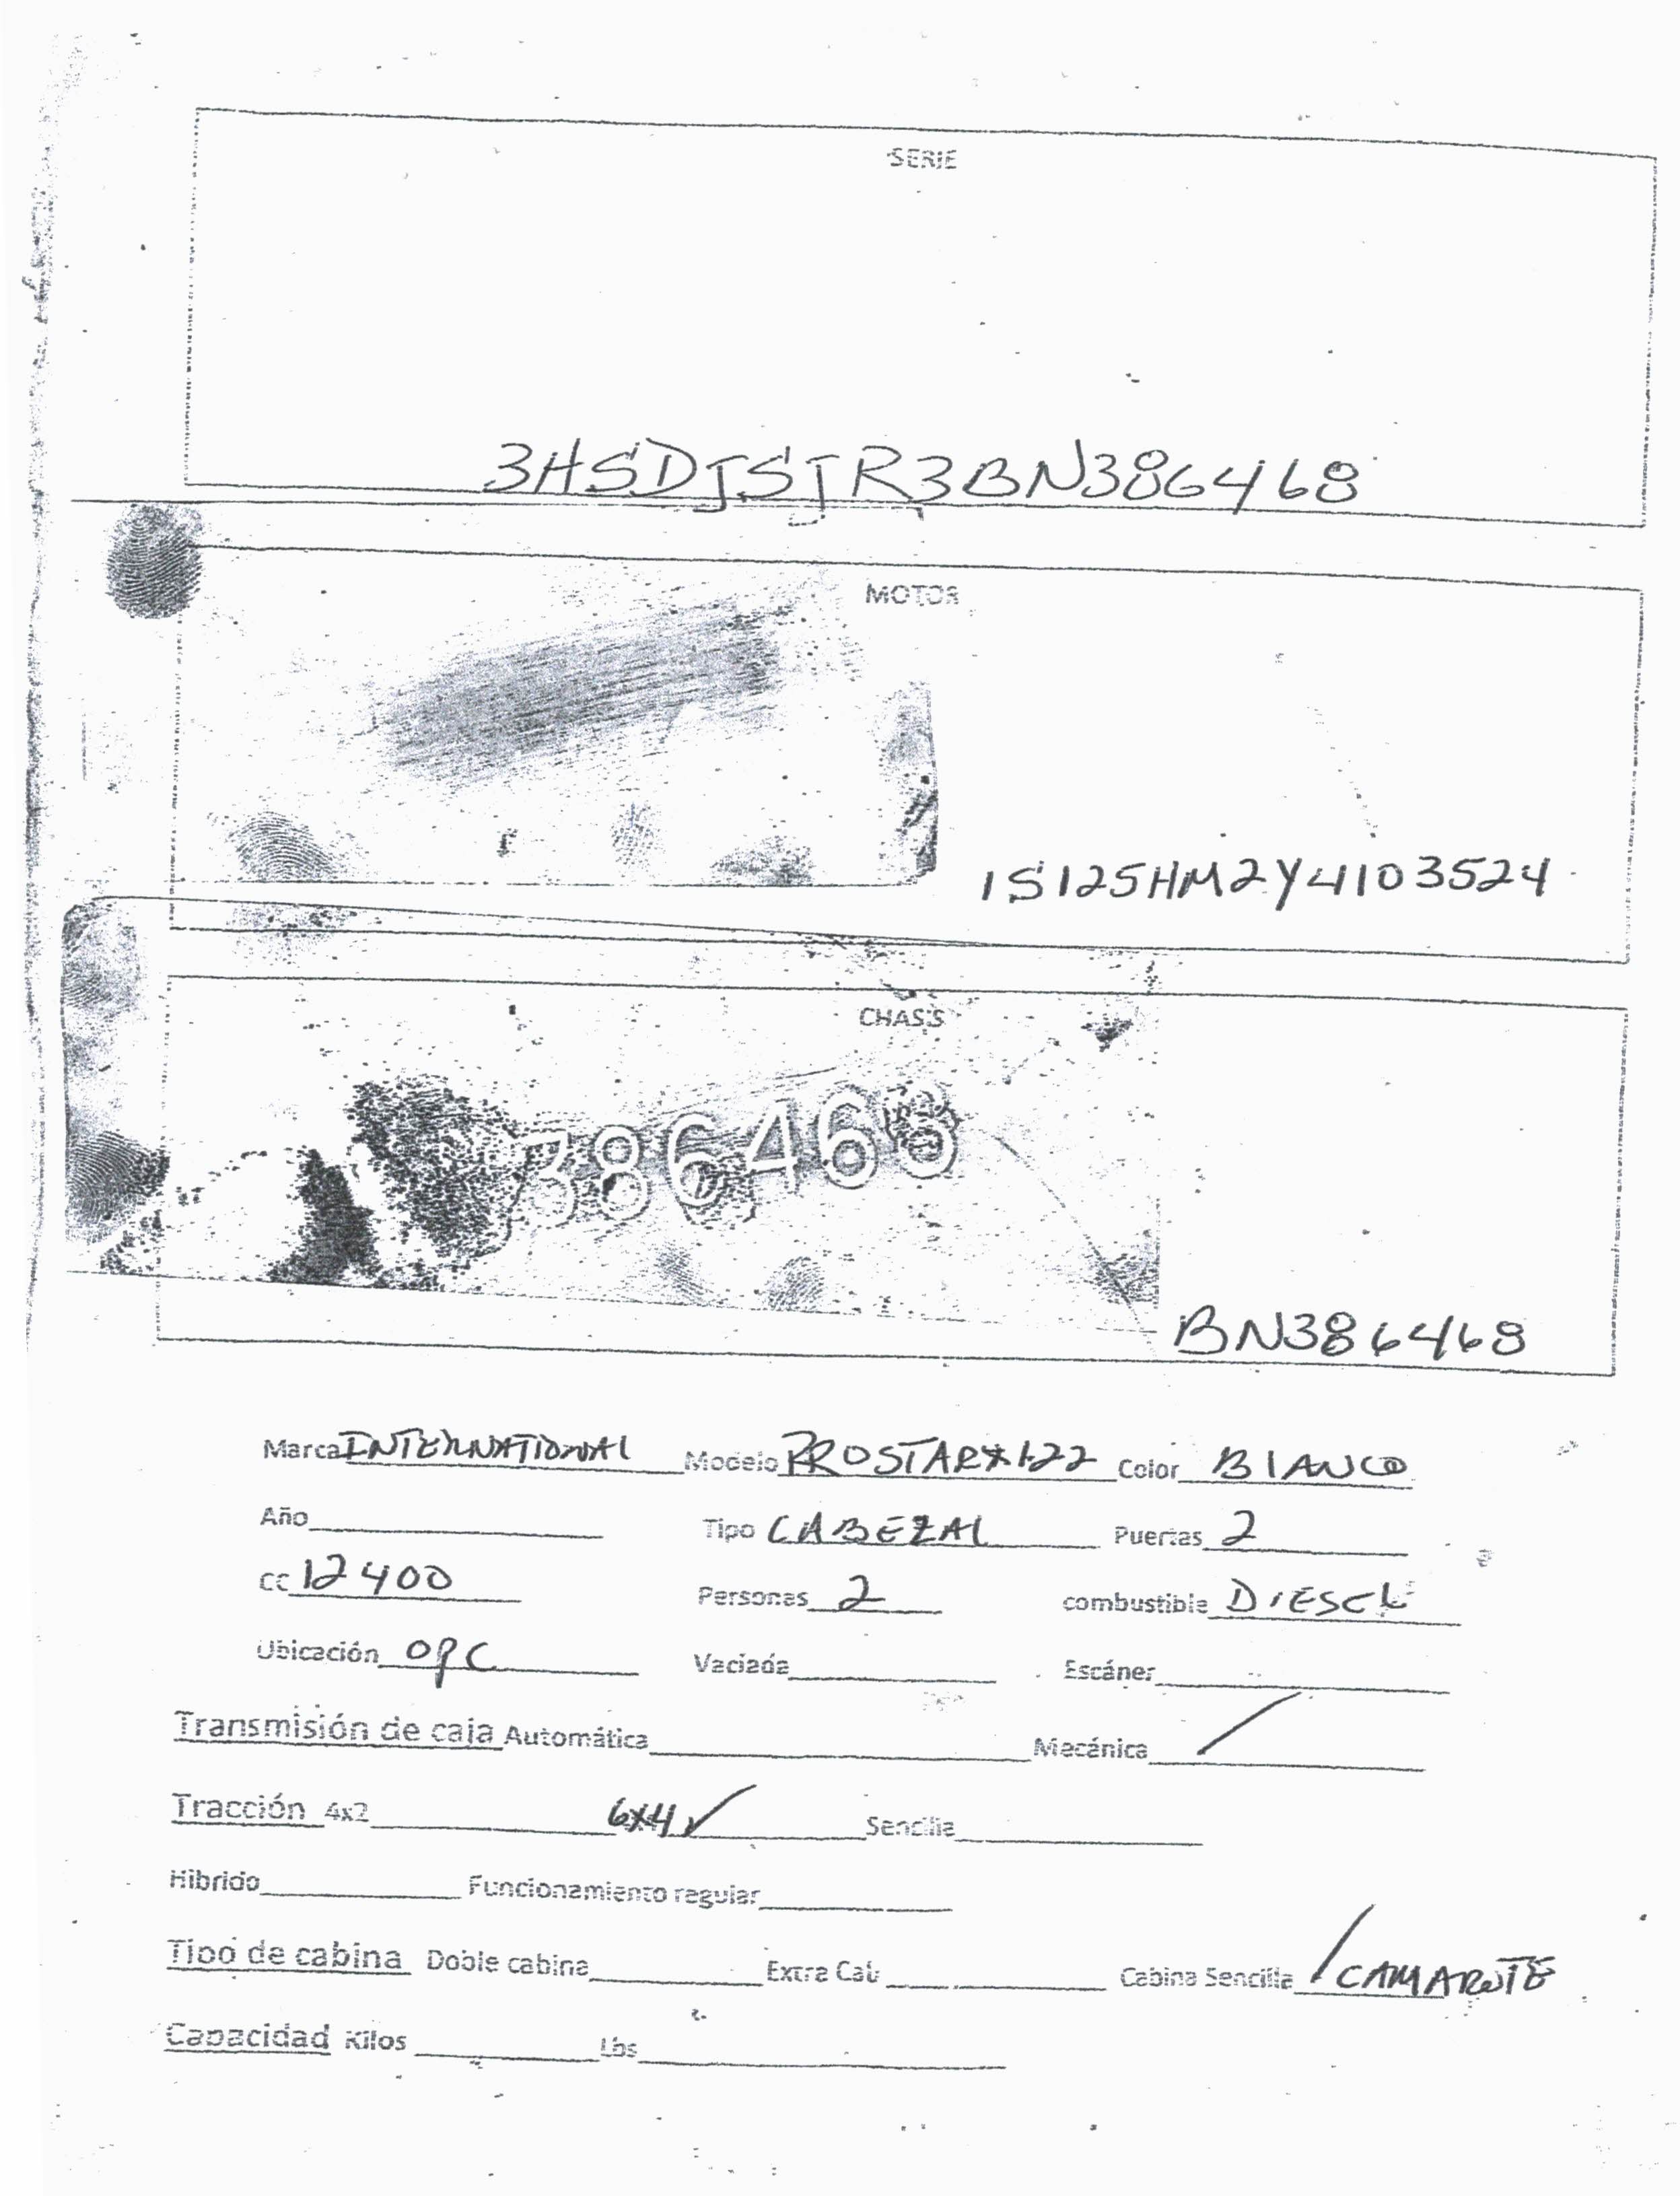 SERIE
3HSDJSJR3BN386468
MOTOR
1S125HM2Y4103524
CHASIS
386468
BN386468
Marca INTERNATIONAL Modelo PROSTAR*122 Color BLANCO
Año Tipo CABEZAL Puertas 2
CC 12400 Personas 2 combustible DIESEL
Ubicación OPC Vaciada Escáner
Transmisión de caja Automática Mecánica /
Tracción 4x2 6X4 ✓ Sencilla
Hibrido Funcionamiento regular
Tipo de cabina Doble cabina Extra Cab Cabina Sencilla / CAMAROTE
Capacidad Kilos Lbs